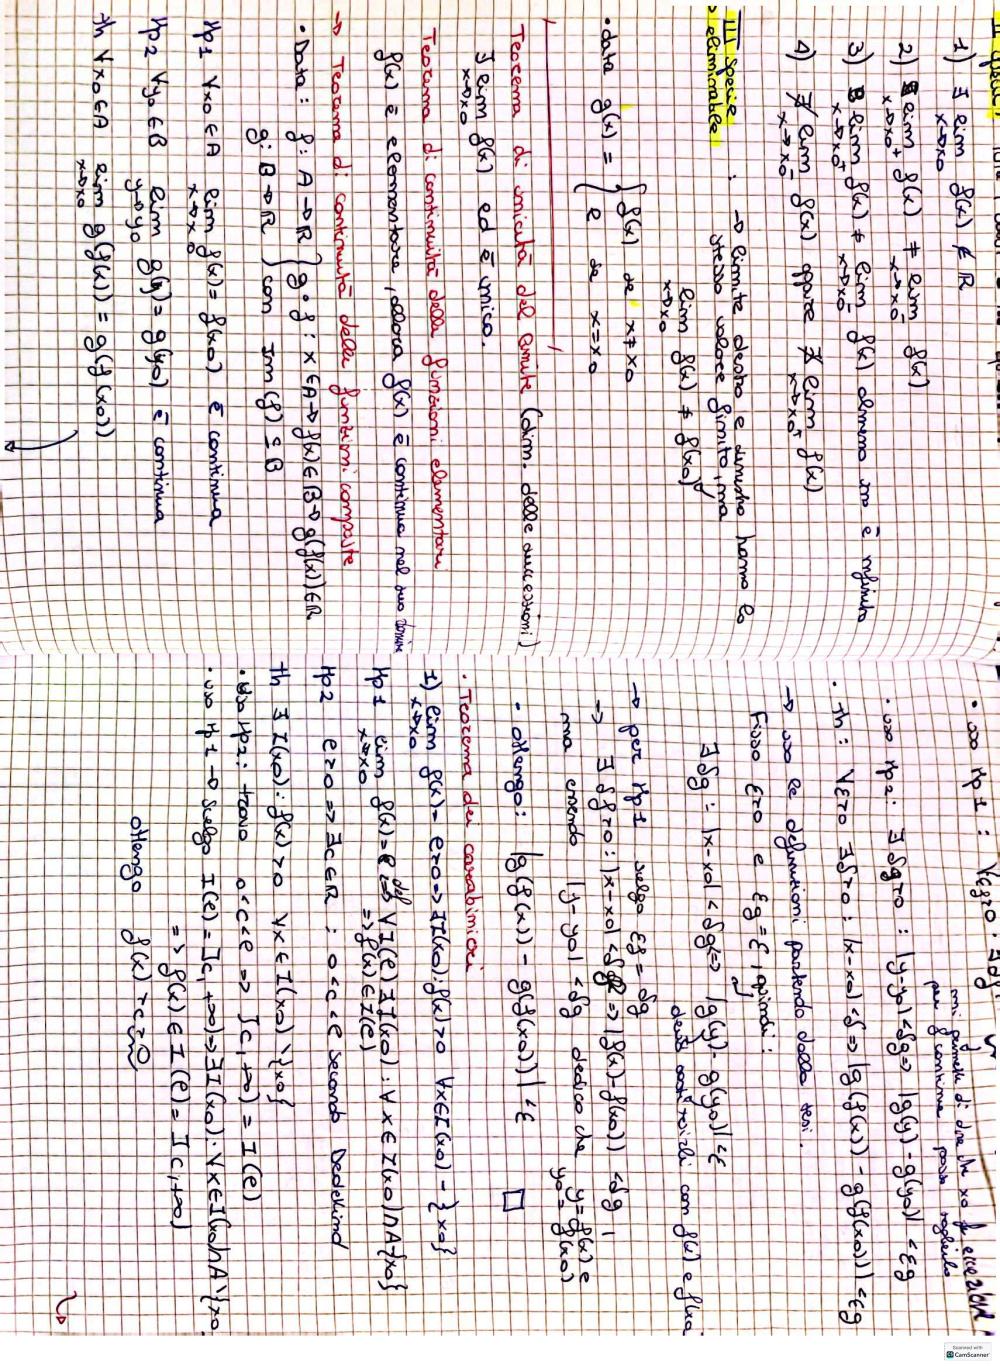 1) ∃ lim f(x) ∉ R
x→x₀
2) lim f(x) ≠ lim f(x)
x→x₀⁺ x→x₀⁻
3) lim f(x) ≠ lim f(x) almeno un è infinito
x→x₀⁺ x→x₀⁻
4) ∄ lim f(x) oppure ∄ lim f(x)
x→x₀⁻ x→x₀⁺
III specie : → limite destro e sinistro hanno lo
→ eliminabile stesso valore finito, ma
lim f(x) ≠ f(x₀)
x→x₀
• data g(x) = { f(x) se x≠x₀
{ l se x=x₀
Teorema di unicità del limite (dim. delle successioni)
∃ lim f(x) ed è unico.
x→x₀
Teorema di continuità delle funzioni elementari
f(x) è elementare, allora f(x) è continua nel suo dominio
→ Teorema di continuità delle funzioni composte
• Data: f: A→R } g∘f: x∈A→f(x)∈B→g(f(x))∈R
g: B→R } con Im(f) ⊆ B
Hp1 ∀x₀∈A lim f(x) = f(x₀) è continua
x→x₀
Hp2 ∀y₀∈B lim g(y) = g(y₀) è continua
y→y₀
th ∀x₀∈A lim g(f(x)) = g(f(x₀))
x→x₀
• uso Hp1 : ∀εf>0 : ∃δf
mi permette di dire che x₀
per f continua posso toglierlo
• uso Hp2 : ∃δg>0 : |y-y₀|<δg => |g(y)-g(y₀)|<εg
• th : ∀ε>0 ∃δ>0 : |x-x₀|<δ => |g(f(x))-g(f(x₀))|<εg
→ uso le definizioni partendo dalla tesi.
Fisso ε>0 e εg=ε, quindi :
∃δg : |x-x₀|<δg => |g(y)-g(y₀)|<ε
con f(x) e f(x₀)
→ per Hp1 scelgo εf = δg
→ ∃δf>0 : |x-x₀|<δf => |f(x)-f(x₀)|<δg
ma essendo |y-y₀|<δg dedico che y=f(x) e
y₀=f(x₀)
• ottengo : |g(f(x))-g(f(x₀))|<ε □
• Teorema dei carabinieri
1) lim f(x) = l>0 => ∃I(x₀):f(x)>0 ∀x∈I(x₀)-{x₀}
x→x₀
Hp1 lim f(x) = l def ⇔ ∀I(l)∃I(x₀) : ∀x∈I(x₀)∩A\{x₀}
x→x₀ => f(x)∈I(l)
Hp2 l>0 => ∃c∈R : 0<c<l secondo Dedekind
th ∃I(x₀): f(x)>0 ∀x∈I(x₀)\{x₀}
• uso Hp2 : trovo 0<c<l => ]c,+∞) = I(l)
• uso Hp1 → scelgo I(l) = ]c,+∞) => ∃I(x₀): ∀x∈I(x₀)∩A\{x₀
=> f(x)∈I(l) = ]c,+∞)
ottengo f(x)>c>0
Scanned with
CamScanner